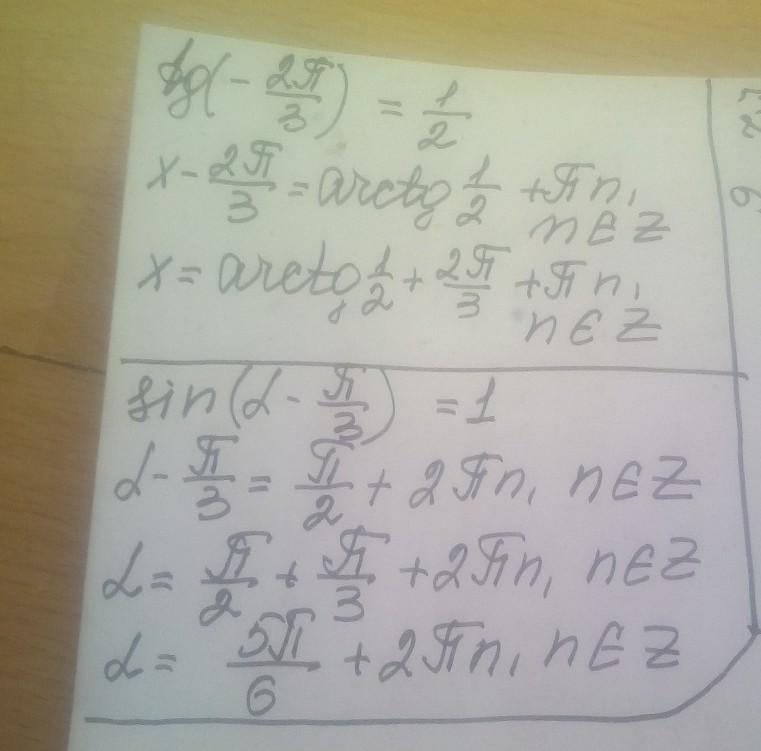 tg(- 2π/3) = 1/2
x - 2π/3 = arctg 1/2 + πn,
n ∈ Z
x = arctg 1/2 + 2π/3 + πn,
n ∈ Z
sin(α - π/3) = 1
α - π/3 = π/2 + 2πn, n ∈ Z
α = π/2 + π/3 + 2πn, n ∈ Z
α = 5π/6 + 2πn, n ∈ Z